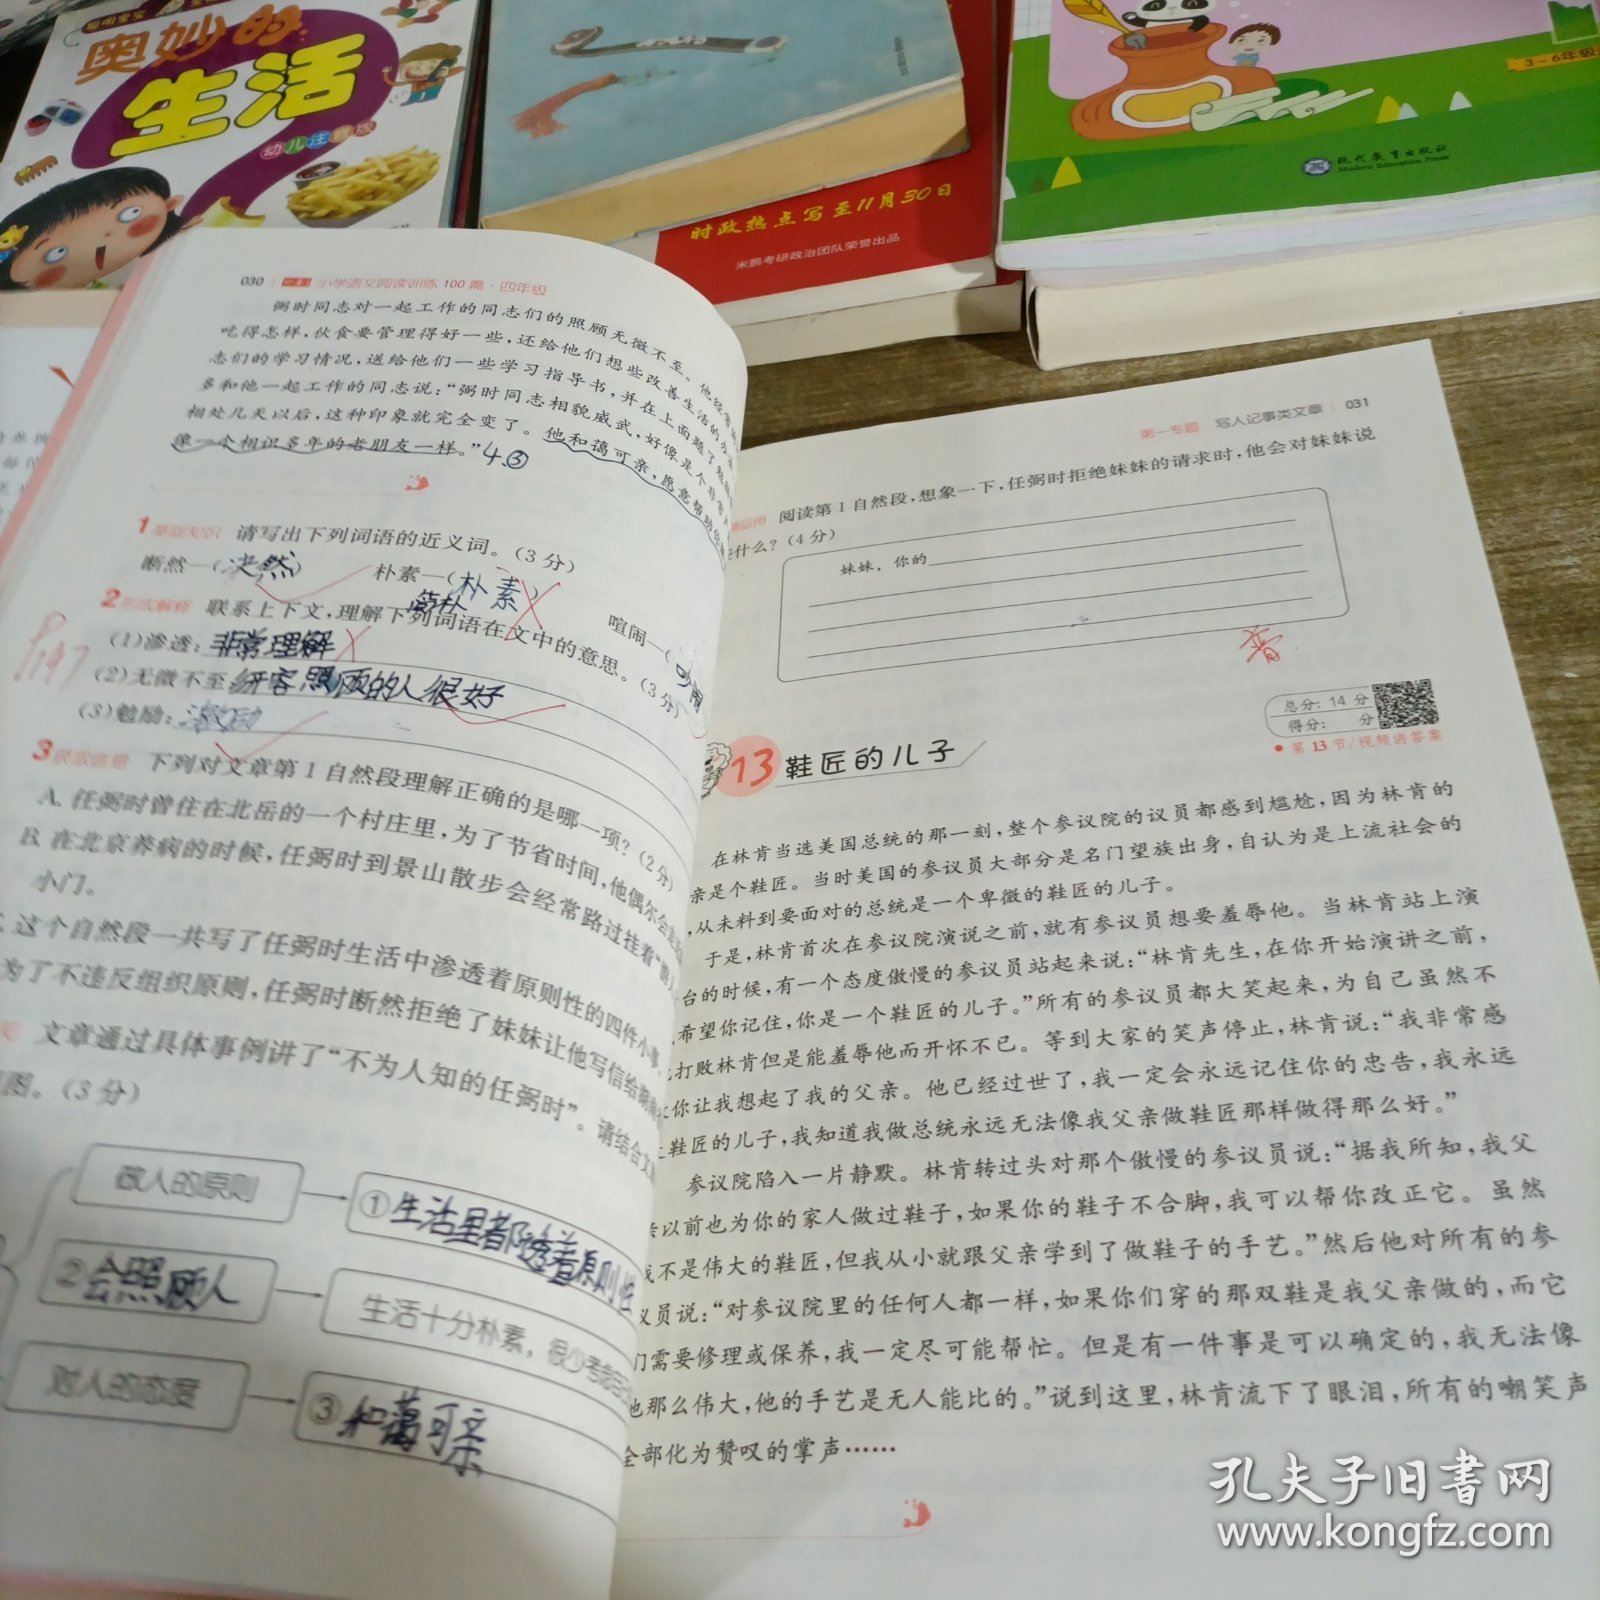 奥妙的
生活
幼儿注音版
时政热点写至11月30日
米鹏考研政治团队荣誉出品
3-6年级
现代教育出版社
Modern Education Press
030 小学语文阅读训练100篇·四年级
弼时同志对一起工作的同志们的照顾无微不至。他经常
吃得怎样,伙食要管理得好一些,还给他们想些改善生活的办法
志们的学习情况,送给他们一些学习指导书,并在上面题了勉励
多和他一起工作的同志说:“弼时同志相貌威武,好像是个非常
相处几天以后,这种印象就完全变了。他和蔼可亲,愿意帮助
像一个相识多年的老朋友一样。”4.③
1 基础知识 请写出下列词语的近义词。(3分)
断然—(决然) 朴素—(朴素) 喧闹—(
2 形式解释 联系上下文,理解下列词语在文中的意思。(3分)
P147
(1)渗透:非常理解
(2)无微不至 照顾的人很好
(3)勉励:激励
3 获取信息 下列对文章第1自然段理解正确的是哪一项?(2分)
A. 任弼时曾住在北岳的一个村庄里,为了节省时间,他偶尔会
B. 在北京养病的时候,任弼时到景山散步会经常路过挂着“
小门。
这个自然段一共写了任弼时生活中渗透着原则性的四件小事。
为了不违反组织原则,任弼时断然拒绝了妹妹让他写信给
文章通过具体事例讲了“不为人知的任弼时”。请结合文
图。(3分)
做人的原则
①生活里都透着原则性
②会照顾人
生活十分朴素,很少考虑自己
对人的态度
③和蔼可亲
第一专题 写人记事类文章 031
运用 阅读第1自然段,想象一下,任弼时拒绝妹妹的请求时,他会对妹妹说
些什么?(4分)
妹妹,你的
总分:14分
得分: 分
第13节/视频讲答案
13 鞋匠的儿子
在林肯当选美国总统的那一刻,整个参议院的议员都感到尴尬,因为林肯的
亲是个鞋匠。当时美国的参议员大部分是名门望族出身,自认为是上流社会的
,从未料到要面对的总统是一个卑微的鞋匠的儿子。
于是,林肯首次在参议院演说之前,就有参议员想要羞辱他。当林肯站上演
台的时候,有一个态度傲慢的参议员站起来说:“林肯先生,在你开始演讲之前,
希望你记住,你是一个鞋匠的儿子。”所有的参议员都大笑起来,为自己虽然不
打败林肯但是能羞辱他而开怀不已。等到大家的笑声停止,林肯说:“我非常感
你让我想起了我的父亲。他已经过世了,我一定会永远记住你的忠告,我永远
鞋匠的儿子,我知道我做总统永远无法像我父亲做鞋匠那样做得那么好。”
参议院陷入一片静默。林肯转过头对那个傲慢的参议员说:“据我所知,我父
亲以前也为你的家人做过鞋子,如果你的鞋子不合脚,我可以帮你改正它。虽然
我不是伟大的鞋匠,但我从小就跟父亲学到了做鞋子的手艺。”然后他对所有的参
议员说:“对参议院里的任何人都一样,如果你们穿的那双鞋是我父亲做的,而它
们需要修理或保养,我一定尽可能帮忙。但是有一件事是可以确定的,我无法像
他那么伟大,他的手艺是无人能比的。”说到这里,林肯流下了眼泪,所有的嘲笑声
全部化为赞叹的掌声……
孔夫子旧书网
www.kongfz.com